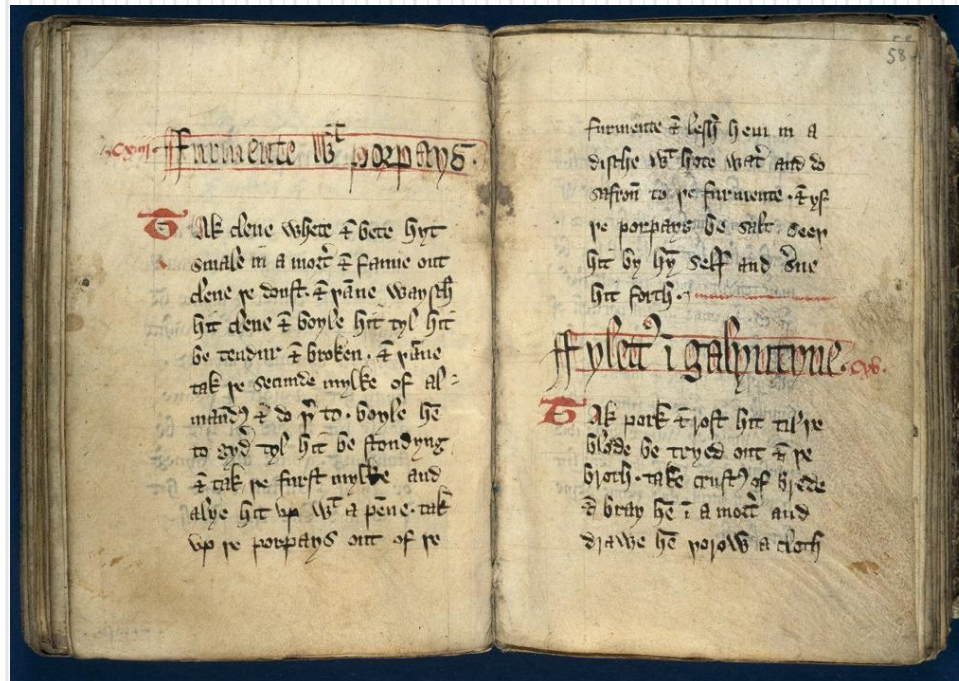 .cxiiij. Furmente wt porpays.
Tak clene whete ⁊ bete hyt
smale in a mort̉ ⁊ fanne out
clene þe doust. ⁊ þāne waysch
hit clene ⁊ boyle hit tyl hit
be tendur ⁊ broken. ⁊ þāne
tak þe secunde mylke of al-
mand̉ ⁊ do þ̉ to. boyle hē
to gyd̉ tyl hit be stondyng
⁊ tak þe furst mylke and
alye hit vp wt a pēne. tak
vp þe porpays out of þe
58
furmente ⁊ lesh hem in a
dische wt hote wat̉ and do
safron to þe furmente. ⁊ yf
þe porpays be salt. seeþ
hit by hȳ self and s̉ue
hit forth.
Fylett̉ ī galyntyne. .cxv.
Tak pork ⁊ rost hit til þe
blode be tryed out ⁊ þe
broth. take crust̉ of brede
⁊ bray hē ī a mort̉ and
drawe hē þorow a cloth